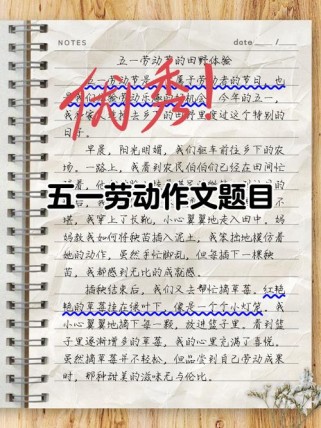 NOTES date: /
五一劳动节的田野体验
五一劳动节是 属于劳动者的节日，也
是我们体验劳动乐 机会。今年的五一，
我 去乡 田野里度过这个特别的
日子。
早晨，阳光明媚，我们驱车前往乡下的农
场。一路上，我看到农民伯伯们已经在田间忙
五一劳动作文题目
堪，我穿上了长靴，小心翼翼地走入田中，妈
妈教我如何将秧苗插入泥土，我笨拙地模仿着
她的动作，虽然手忙脚乱，但每插下一棵秧
苗，我都感到无比的成就感。
插秧结束后，我们又去帮忙摘草莓，红艳
艳的草莓挂在绿叶下，像是一个个小灯笼，我
小心翼翼地摘下每一颗，放进篮子里。看到篮
子里逐渐增多的草莓，我的心里充满了喜悦。
虽然摘草莓并不轻松，但品尝到自己劳动成果
时，那种甜美的滋味无与伦比。
优秀！